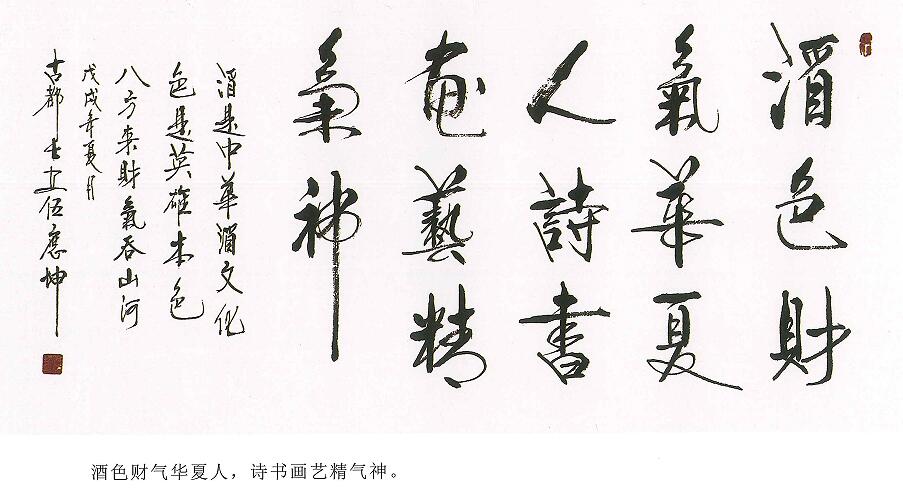 酒色財
氣華夏
人詩書
畫藝精
氣神
酒是中華酒文化
色是英雄本色
八方来財氣吞山河
戊戌年夏月
古都伍應坤
酒色财气华夏人，诗书画艺精气神。